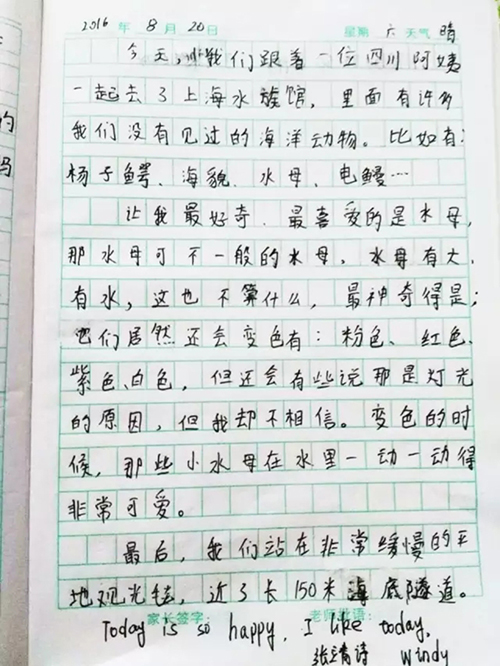 2016 年 8 月 20 日 星期 六 天气 晴
今天,我们跟着一位四川阿姨
一起去了上海水族馆,里面有许多
我们没有见过的海洋动物。比如有:
杨子鳄、海貌、水母、电鳗…
让我最好奇、最喜爱的是水母,
那水母可不一般的水母,水母有大、
有水,这也不算什么,最神奇得是;
它们居然还会变色有:粉色、红色、
紫色、白色,但还会有些说那是灯光
的原因,但我却不相信。变色的时
候,那些小水母在水里一动一动得
非常可爱。
最后,我们站在非常缓慢的平
地观光毯,近了长150米海底隧道。
家长签字: 老师评语:
Today is so happy, I like today.
诗 Windy
的
吗